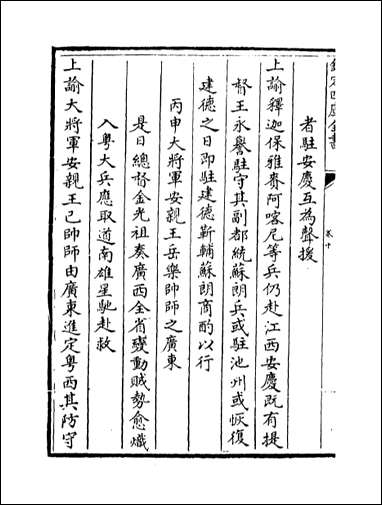 欽定四庫全書
卷十
者駐安慶互為聲援
上諭釋迦保雅賚阿喀尼等兵仍赴江西安慶既有提
督王永譽駐守其副都統蘇朗兵或駐池州或恢復
建德之日即駐建德靳輔蘇朗商酌以行
丙申大將軍安親王岳樂帥師之廣東
是日總督金光祖奏廣西全省變動賊勢愈熾
入粤大兵應取道南雄星馳赴救
上諭大將軍安親王已帥師由廣東進定粤西其防守